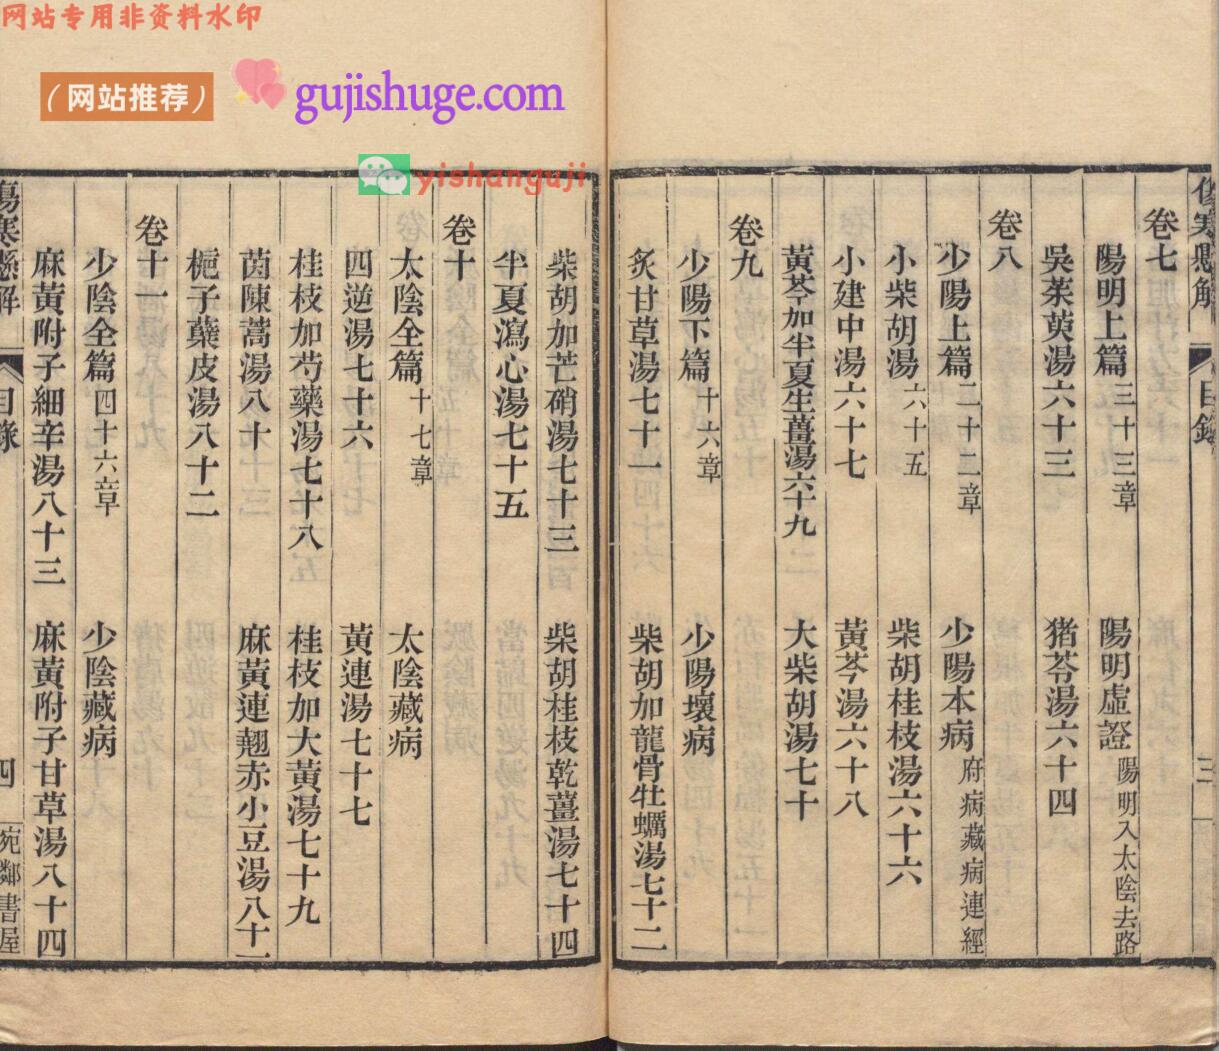 网站专用非资料水印
（网站推荐）
gujishuge.com
yishanguji
傷寒懸解
目錄
三
卷七
陽明上篇 三十三章 陽明虛證 陽明入太陰去路
吳茱萸湯六十三 猪苓湯六十四
卷八
少陽上篇 二十二章 少陽本病 府病藏病連經
小柴胡湯 六十五 柴胡桂枝湯六十六
小建中湯六十七 黃芩湯六十八
黃芩加半夏生薑湯六十九 大柴胡湯七十
卷九
少陽下篇 十六章 少陽壞病
炙甘草湯七十一 柴胡加龍骨牡蠣湯七十二
柴胡加芒硝湯七十三 柴胡桂枝乾薑湯七十四
半夏瀉心湯七十五
卷十
太陰全篇 十七章 太陰藏病
四逆湯七十六 黃連湯七十七
桂枝加芍藥湯七十八 桂枝加大黃湯七十九
茵陳蒿湯八十 麻黃連翹赤小豆湯八十一
梔子蘗皮湯八十二
卷十一
少陰全篇 四十六章 少陰藏病
麻黃附子細辛湯八十三 麻黃附子甘草湯八十四
傷寒懸解
目錄
四
宛鄰書屋